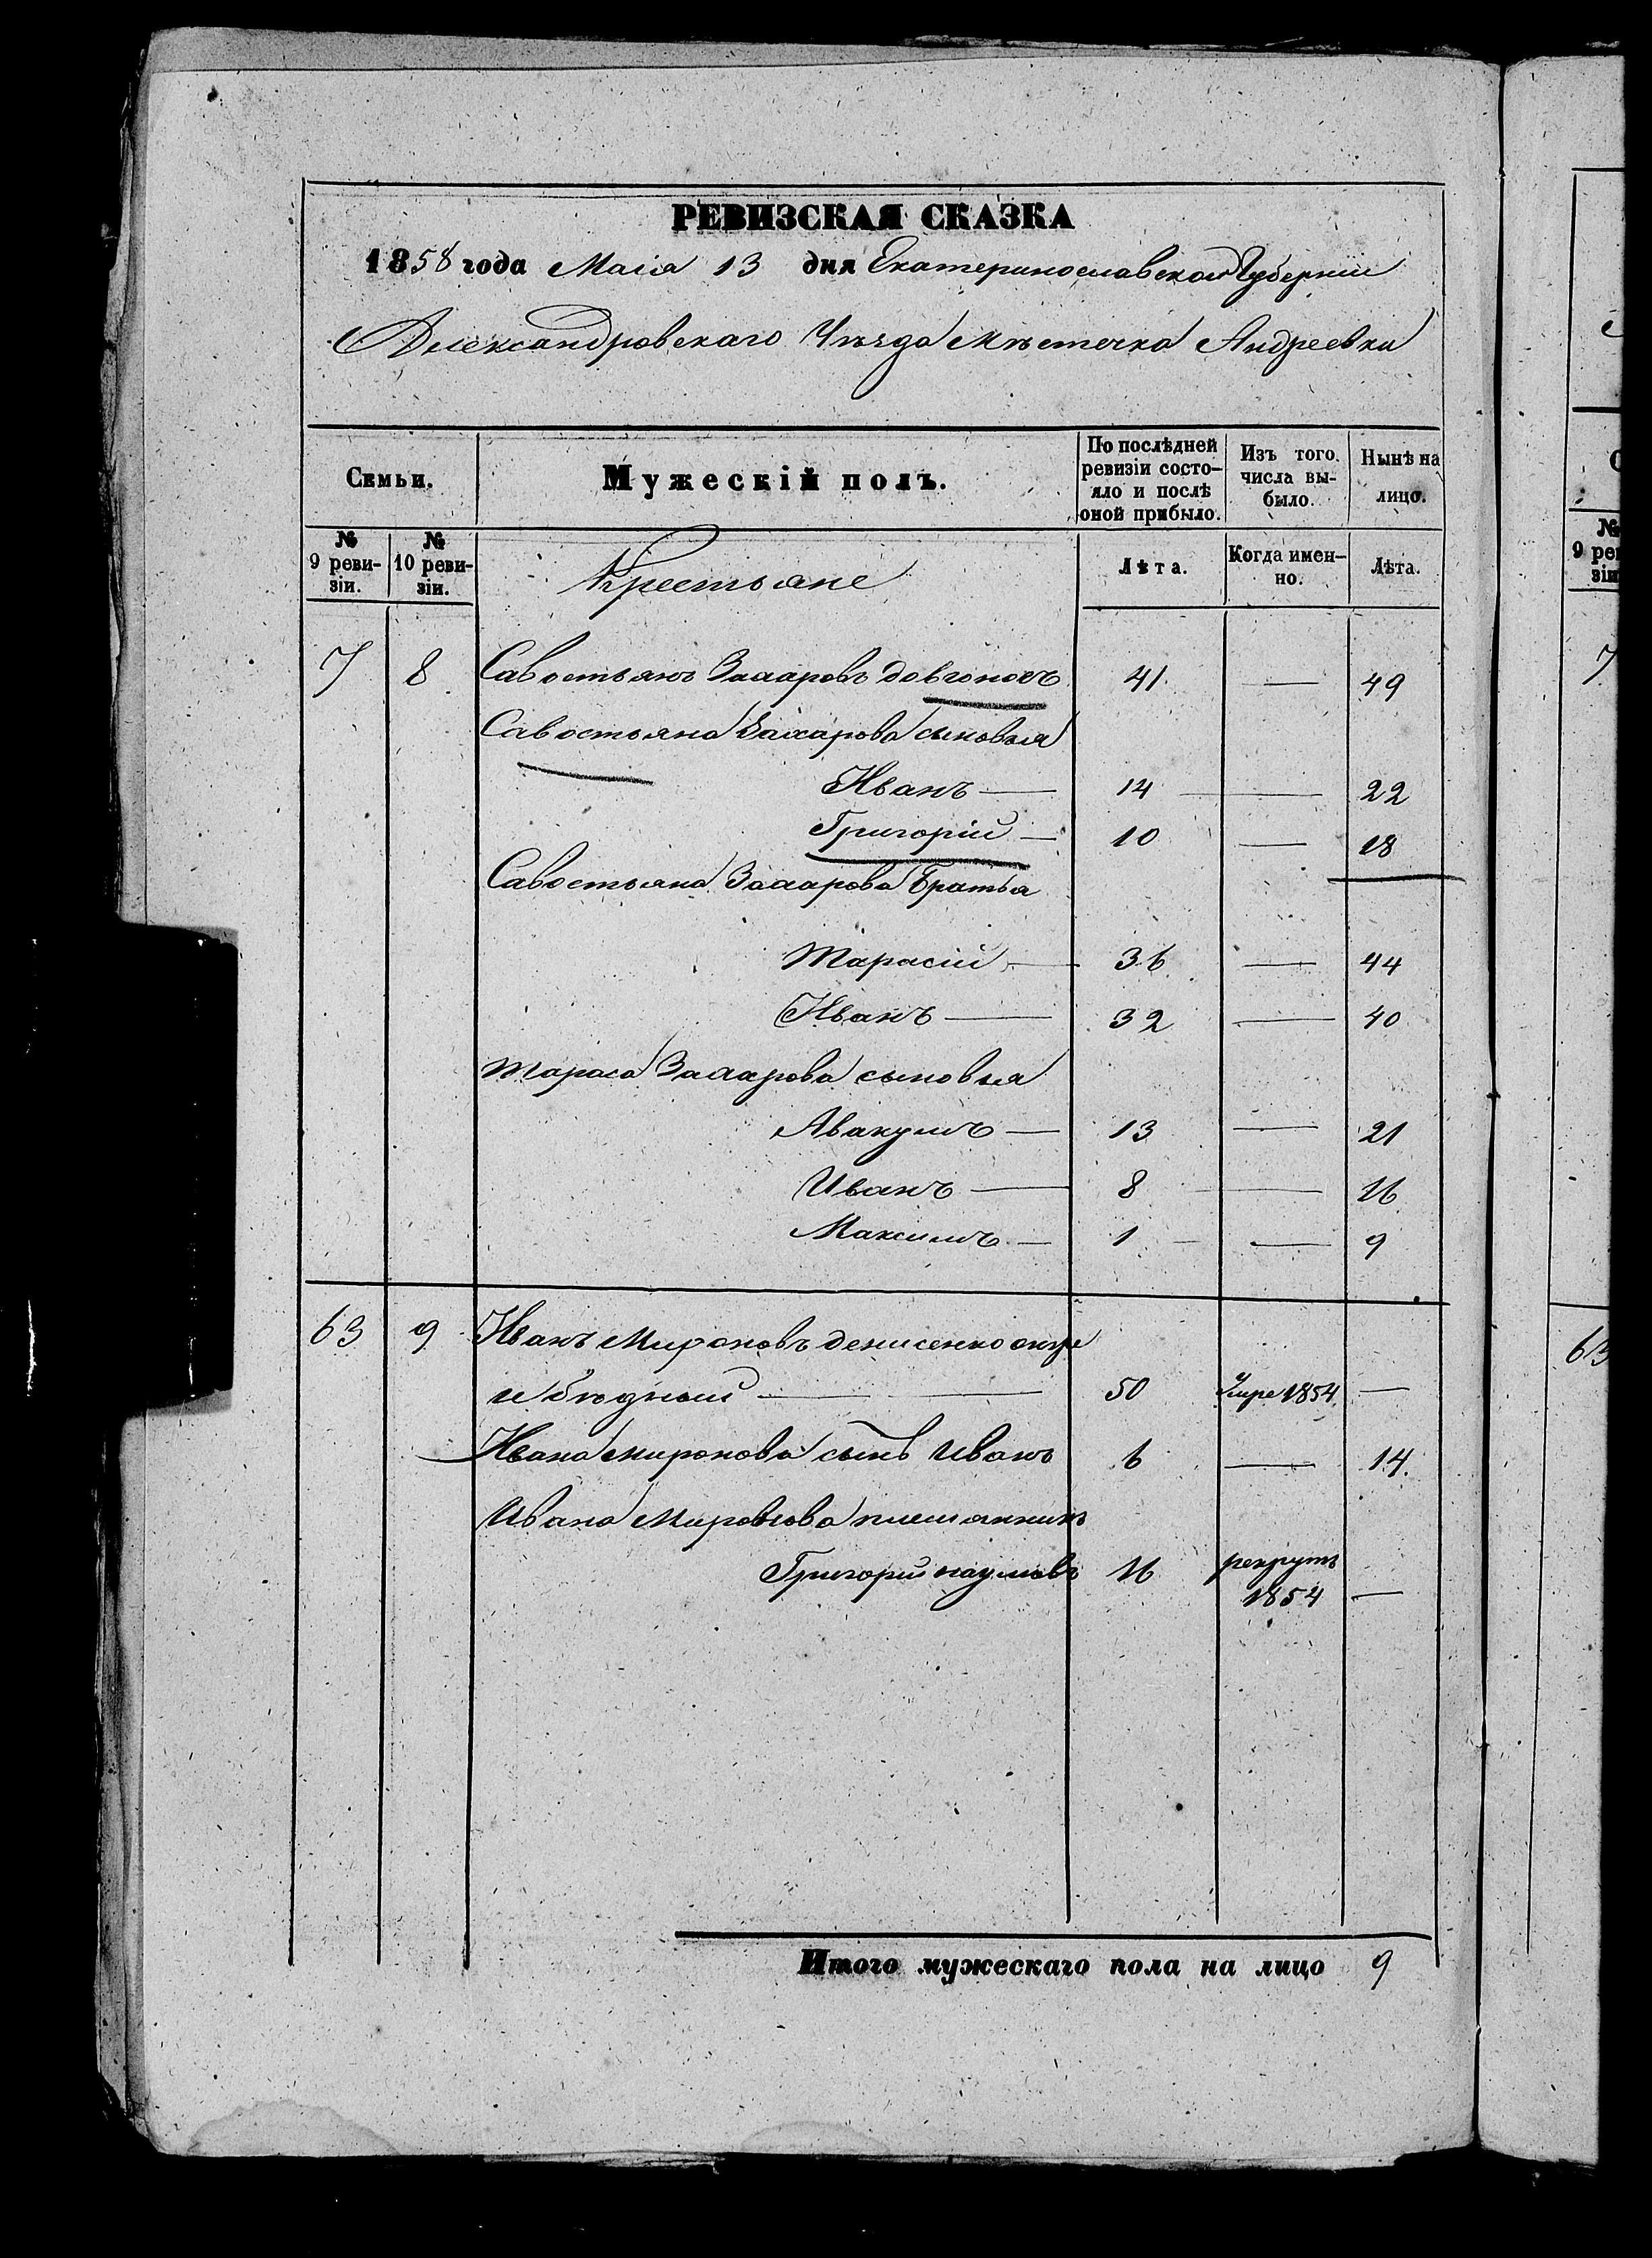 РЕВИЗСКАЯ СКАЗКА
1858 года Маія 13 дня Екатеринославской Губерніи
Александровскаго Уѣзда Мѣстечка Андреевки
Семьи.
Мужескій полъ.
По послѣдней ревизіи состо-
яло и послѣ оной прибыло.
Изъ того числа вы-
было.
Нынѣ на лицо.
№ 9 реви-
зіи.
№ 10 реви-
зіи.
Крестьяне
Лѣта.
Когда имен-
но.
Лѣта.
7 8 Савостьянъ Захаровъ Довгоногъ 41 — 49
Савостьяна Захарова сыновья
Иванъ — 14 — 22
Григорій — 10 — 18
Савостьяна Захарова Братья
Тарасій — 36 — 44
Иванъ — 32 — 40
Тараса Захарова сыновья
Авакумъ — 13 — 21
Иванъ — 8 — 16
Максимъ — 1 — 9
63 9 Иванъ Мироновъ Денисенко онже
и бѣдный — 50 Умре 1854 —
Ивана Миронова сынъ Иванъ 6 — 14.
Ивана Миронова племянникъ
Григорій Наумовъ 16 рекрутъ
1854 —
Итого мужескаго пола на лицо 9
№
9 рев
зіи
7
63